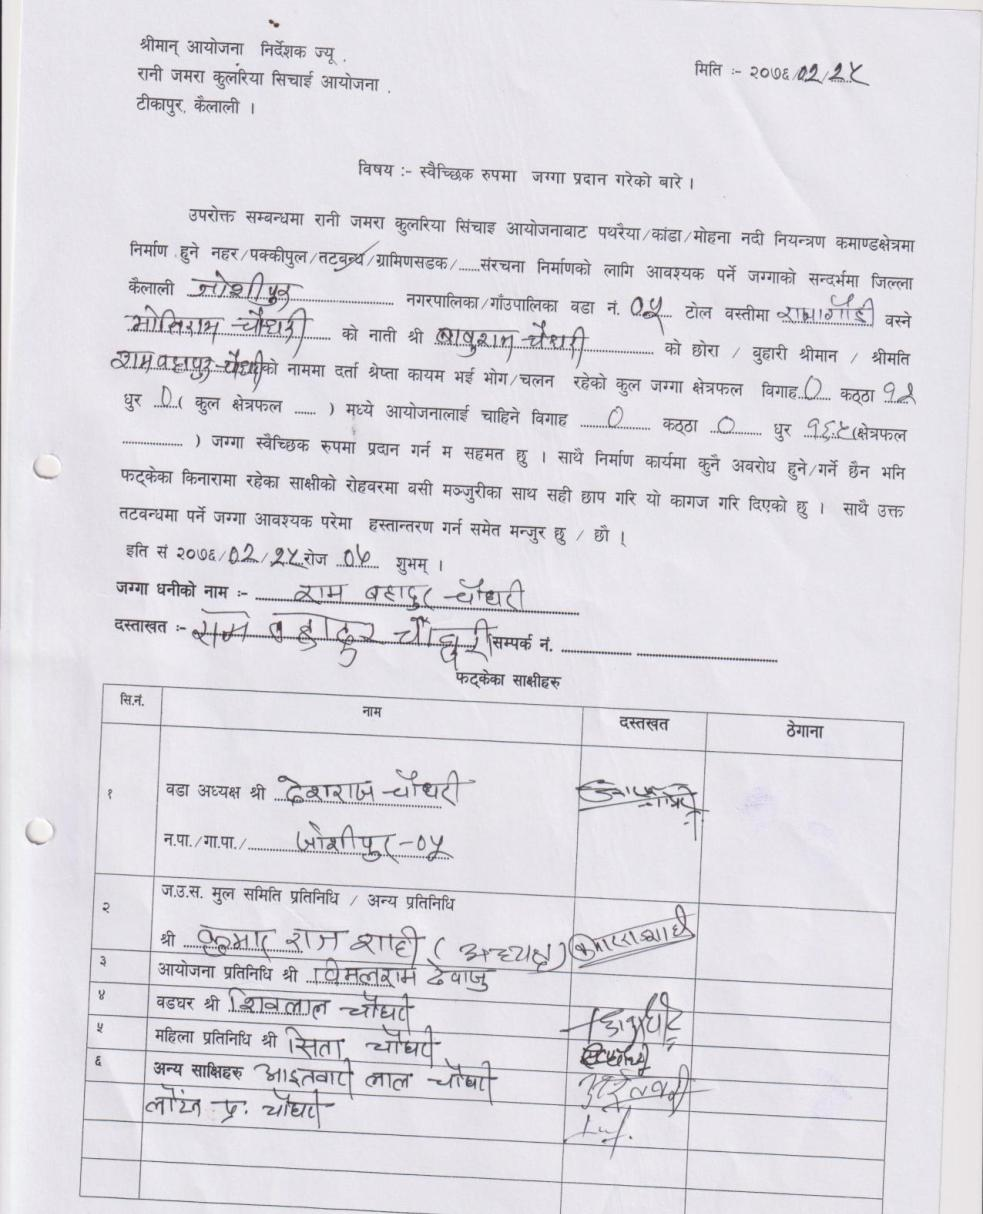 श्रीमान् आयोजना निर्देशक ज्यू .
रानी जमरा कुलरिया सिचाई आयोजना .
टीकापुर, कैलाली ।
मिति :- २०७६/02/२५
विषय :- स्वैच्छिक रुपमा जग्गा प्रदान गरेको बारे ।
उपरोक्त सम्बन्धमा रानी जमरा कुलरिया सिंचाइ आयोजनाबाट पथरैया/कांडा/मोहना नदी नियन्त्रण कमाण्डक्षेत्रमा
निर्माण हुने नहर/पक्कीपुल/तटवन्ध/ग्रामिणसडक/......संरचना निर्माणको लागि आवश्यक पर्ने जग्गाको सन्दर्भमा जिल्ला
कैलाली जोशीपुर नगरपालिका/गाँउपालिका वडा नं. 0५ टोल वस्तीमा वस्ने
मोतिराम चौधरी को नाती श्री बाबुराम चौधरी को छोरा / वुहारी श्रीमान / श्रीमति
रामबहादुर चौधरीको नाममा दर्ता श्रेष्ता कायम भई भोग/चलन रहेको कुल जग्गा क्षेत्रफल विगाह 0 कठ्ठा १२
धुर 0 ( कुल क्षेत्रफल ...... ) मध्ये आयोजनालाई चाहिने विगाह 0 कठ्ठा 0 धुर (क्षेत्रफल
................ ) जग्गा स्वैच्छिक रुपमा प्रदान गर्न म सहमत छु । साथै निर्माण कार्यमा कुनै अवरोध हुने/गर्ने छैन भनि
फट्केका किनारामा रहेका साक्षीको रोहवरमा वसी मञ्जुरीका साथ सही छाप गरि यो कागज गरि दिएको छु । साथै उक्त
तटवन्धमा पर्ने जग्गा आवश्यक परेमा हस्तान्तरण गर्न समेत मन्जुर छु / छौ ।
इति सं २०७६/02/२५ रोज 0५ शुभम् ।
जग्गा धनीको नाम :- राम बहादुर चौधरी
दस्ताखत :- राम बहादुर चौधरी सम्पर्क नं. ................
फट्केका साक्षीहरु
सि.नं. नाम दस्तखत ठेगाना
१ वडा अध्यक्ष श्री देशराज चौधरी
न.पा./गा.पा./ जोशीपुर-0५
२ ज.उ.स. मुल समिति प्रतिनिधि / अन्य प्रतिनिधि
श्री कुमार राज शाही (अध्यक्ष)
३ आयोजना प्रतिनिधि श्री विमलराम देवाजु
४ वडघर श्री शिवलाल चौधरी
५ महिला प्रतिनिधि श्री सिता चौधरी
६ अन्य साक्षिहरु आइतवारी लाल चौधरी
प्र. चौधरी